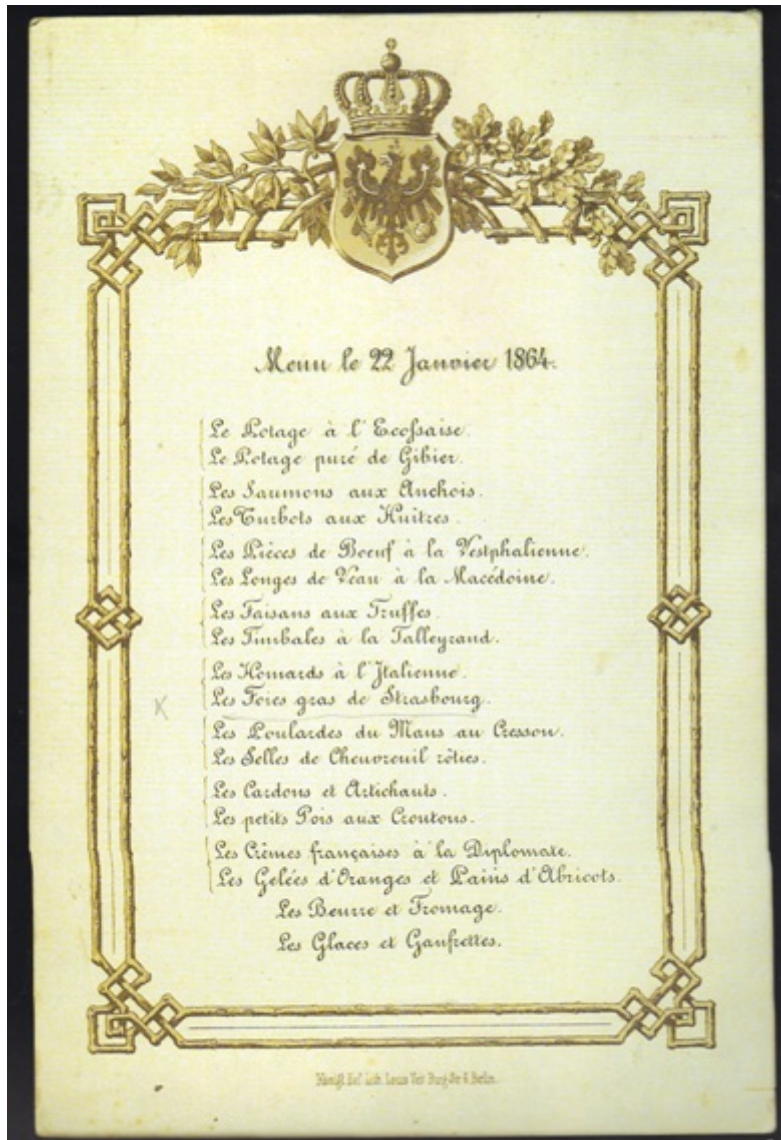 Menu le 22 Janvier 1864.
Le Potage à l'Ecoſsaise.
Le Potage puré de Gibier.
Les Saumons aux Anchois.
Les Turbots aux Huîtres.
Les Pièces de Boeuf à la Vestphalienne.
Les Longes de Veau à la Macédoine.
Les Faisans aux Truffes.
Les Timbales à la Talleyrand.
Les Homards à l'Italienne.
Les Foies gras de Strasbourg.
Les Poulardes du Mans au Cresson.
Les Selles de Cheuvreuil rôties.
Les Cardons et Artichauts.
Les petits Pois aux Croutons.
Les Crêmes françaises à la Diplomate.
Les Gelées d'Oranges et Pains d'Abricots.
Les Beurre et Fromage.
Les Glaces et Gaufrettes.
Königl. Hof Lith. Louis Veit Berlin.